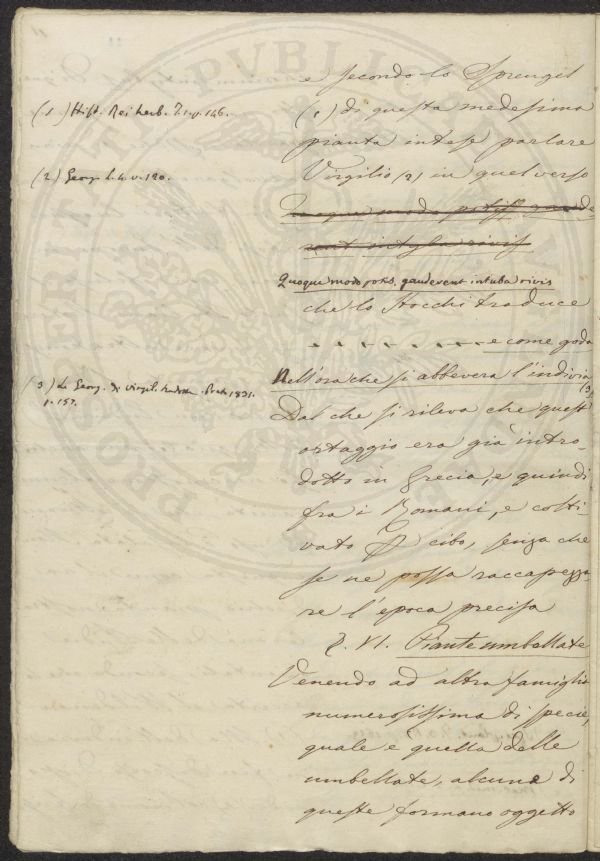 e secondo lo Sprengel
(1) Hist. Rei herb. T. 1. p. 146.
(1) di questa medesima
pianta intese parlare
(2) Georg. l. 4. v. 120.
Virgilio (2) in quel verso
Quoque modo potis gaude
rent intyba rivis
Quoque modo potis. gauderent intuba rivis
che lo Stocchi traduce
e come goda
Nell'ora che si abbevera l'indivia (3)
(3) Le Georg. di Virgil. tradotte. Prato 1831.
p. 157.
Dal che si rileva che quest'
ortaggio era già intro-
dotto in Grecia, e quindi
fra i Romani, e colti-
vato per cibo, senza che
se ne possa raccapezza
re l'epoca precisa
§. VI. Piante umbellate
Venendo ad altra famiglia
numerosissima di specie,
quale è quella delle
umbellate, alcune di
queste formano oggetto